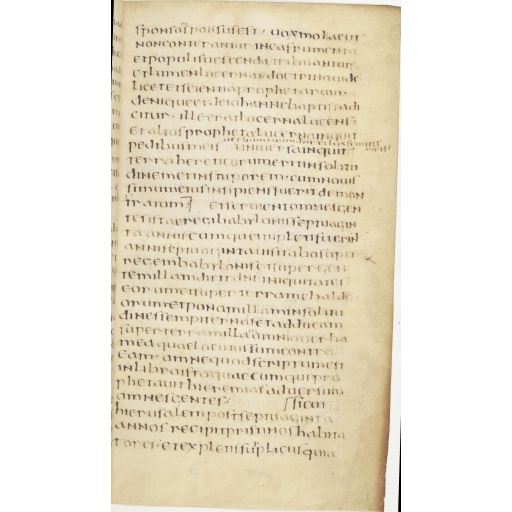 sponsa sponsus est · vox molae ut
non conterantur in ca frumenta
et populis vescenda tribuantur
et lumen lucernae doctrina vide
licet et scientia prophetarum
denique et de iohanne baptista di
citur · ille erat lucerna lucens
et alius propheta lucerna inquit
pedibus meis universa inquit
terra hereticorum erit in solitu
dinem et in stuporem · cum quis
simum eius insipiens fuerit demon
tratum et servient omnes gen
tes istae regi babylonis septuagin
ta annis cumque impleti fuerint
anni septuaginta visitabo super
regem babylonis et super gen
tem illam dicit dns iniquitates
eorum et super terram chalde
orum et ponam illam in solitu
dines sempiternas et adducam
super terram illam omnia verba
mea quae locutus sum contra
eam · omne quod scriptum est
in libro isto quaecumque pro
phetavit hieremias adversum
omnes gentes · sicut
hierusalem post septuaginta
annos recipit pristinos habita
tores · et expletis supplicus quia